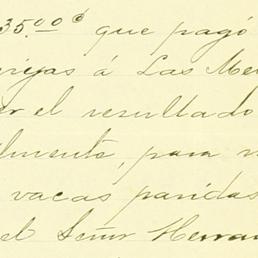 35.00¢ que pagó
á Las Me
er el resultado
lmente, para v
vacas paridas
el Señor Herran